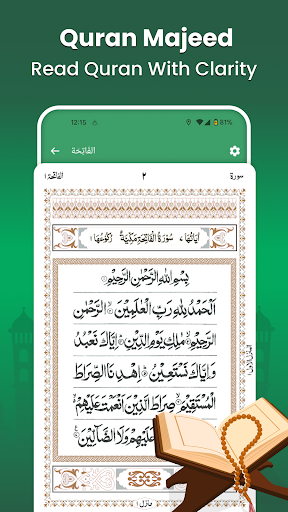 Quran Majeed
Read Quran With Clarity
12:15 81%
الفَاتِحَة
الفَاتِحَة ١ ٢ سورة
اٰيَاتُهَا ٧ سُوْرَةُ الْفَاتِحَةِ مَكِّيَّةٌ رُكُوْعُهَا ١
بِسْمِ اللّٰهِ الرَّحْمٰنِ الرَّحِيْمِ
اَلْحَمْدُ لِلّٰهِ رَبِّ الْعٰلَمِيْنَ الرَّحْمٰنِ
الرَّحِيْمِ مٰلِكِ يَوْمِ الدِّيْنِ اِيَّاكَ نَعْبُدُ
وَاِيَّاكَ نَسْتَعِيْنُ اِهْدِنَا الصِّرَاطَ
الْمُسْتَقِيْمَ صِرَاطَ الَّذِيْنَ اَنْعَمْتَ عَلَيْهِمْ
عَلَيْهِمْ وَلَا الضَّآلِّيْنَ